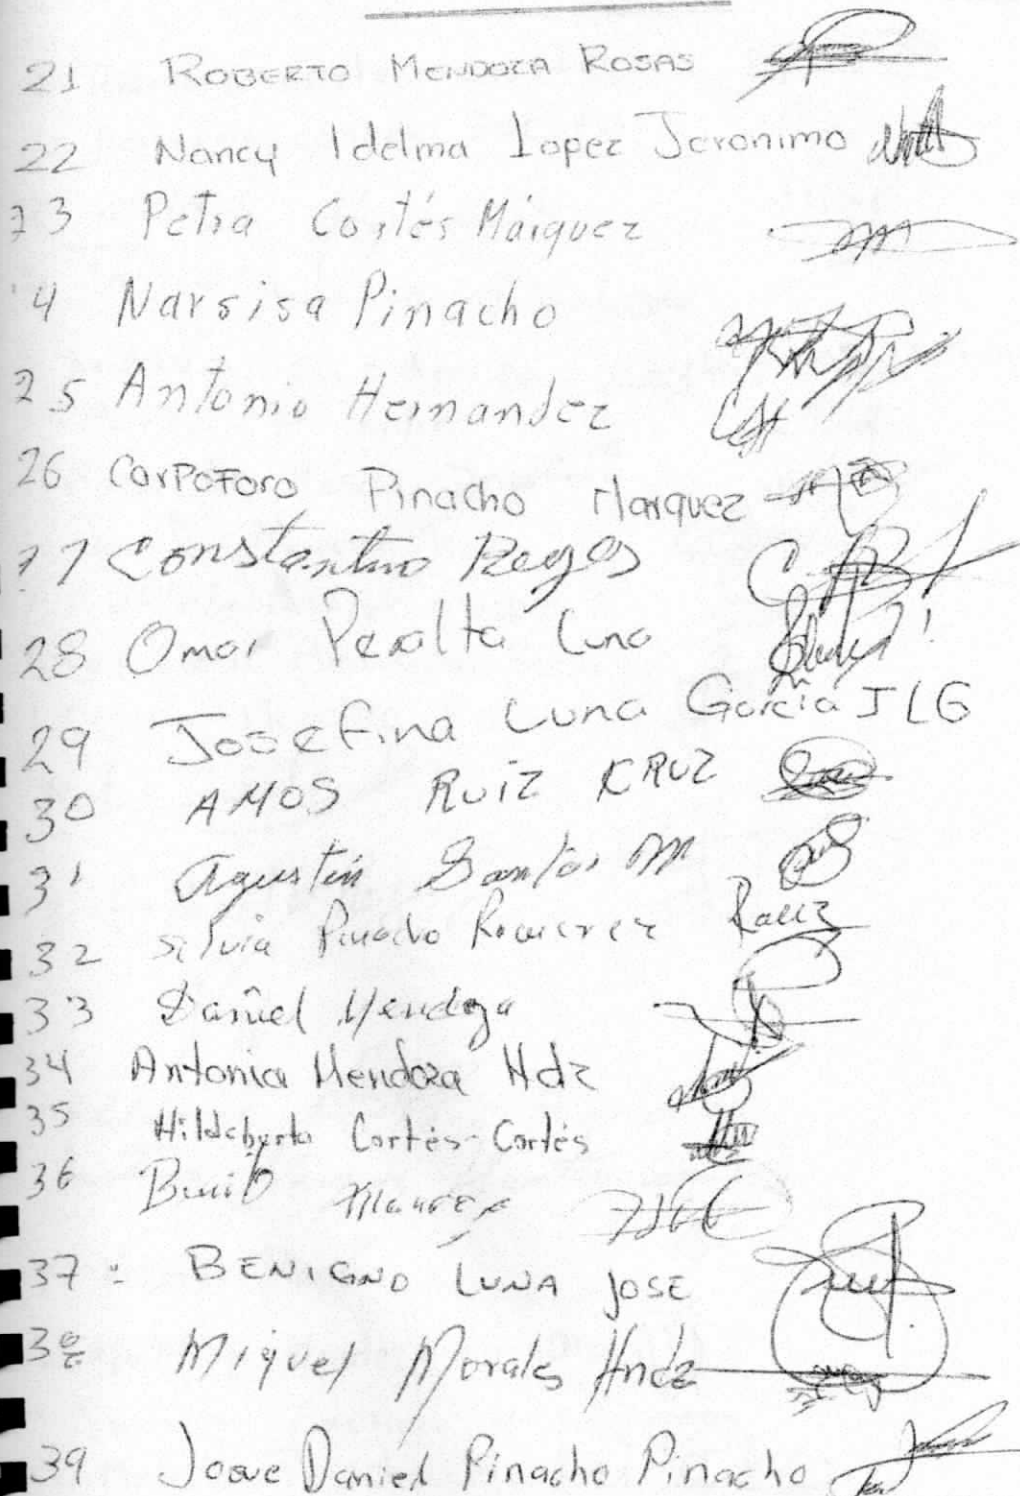 21 ROBERTO MENDOZA ROSAS
22 Nancy Idelma Lopez Jeronimo
23 Petra Cortés Márquez
4 Narsisa Pinacho
25 Antonio Hernandez
26 CarPoForo Pinacho Marquez
27 Constantino Reyes
28 Omar Peralta Luna
29 Josefina Luna García JLG
30 AMOS RUIZ CRUZ
31 Agustín Santos M
32 Silvia Pinacho Ramirez
33 Daniel Mendoza
34 Antonia Mendoza Hdz
35 Hildeberto Cortés-Cortés
36 Benito
37 BENIGNO LUNA JOSE
38 Miguel Morales Hndz
39 Josue Daniel Pinacho Pinacho